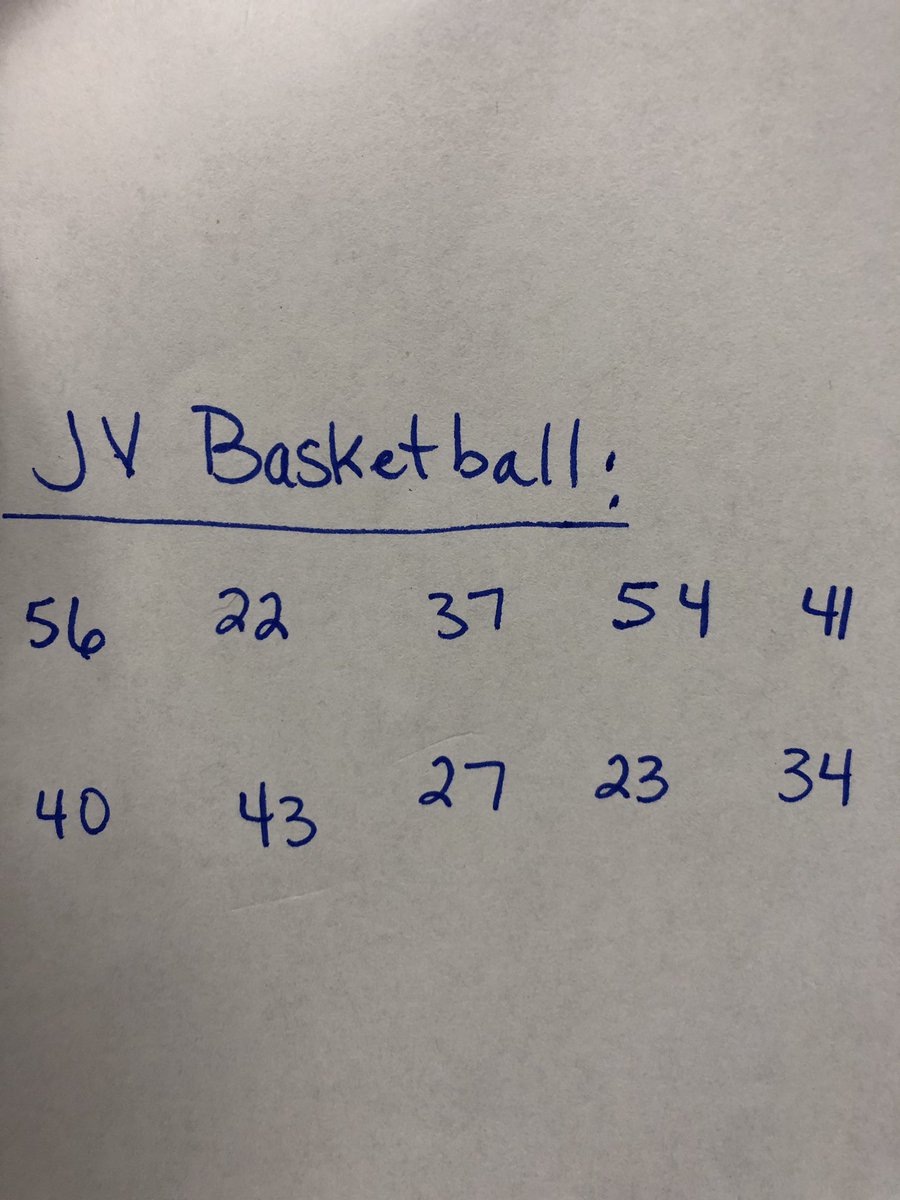 JV Basketball:
56 22 37 54 41
40 43 27 23 34